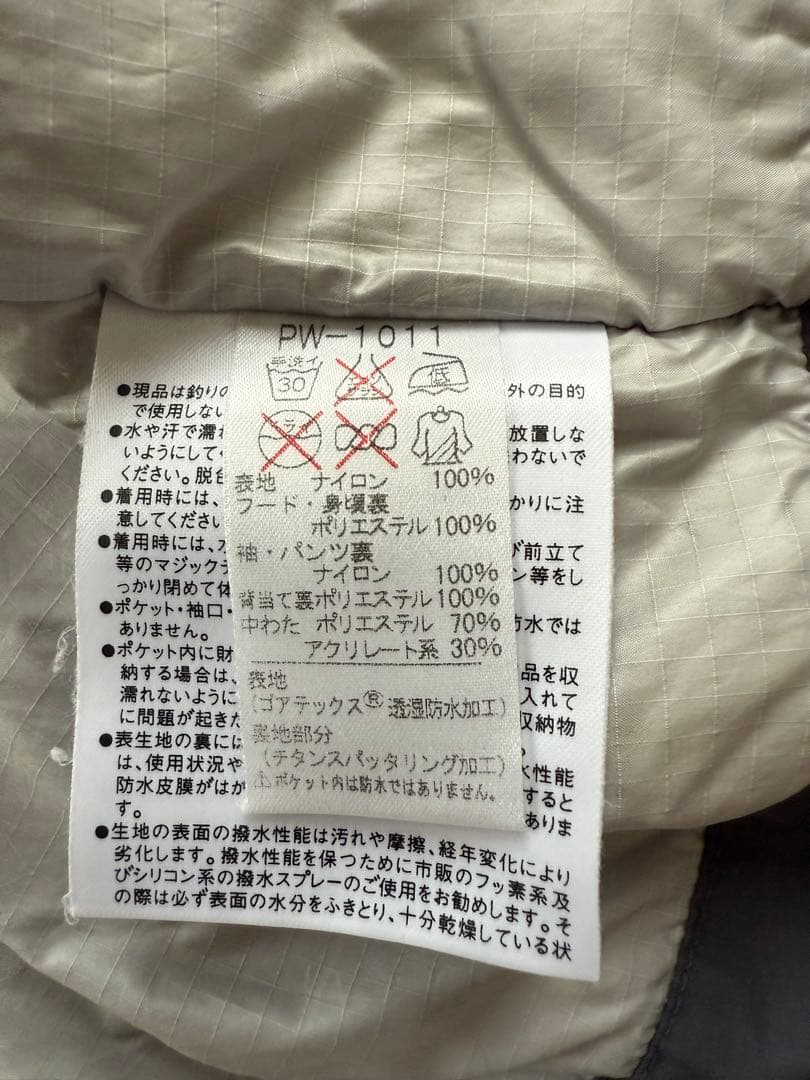 PW-1011
30
低
表地 ナイロン 100%
フード・身頃裏
ポリエステル 100%
袖・パンツ裏
ナイロン 100%
背当て裏ポリエステル 100%
中わた ポリエステル 70%
アクリレート系 30%
表地
(ゴアテックス® 透湿防水加工)
裏地部分
(チタンスパッタリング加工)
⚠ポケット内は防水ではありません。
●現品は釣りの
外の目的
で使用しない
●水や汗で濡れ
放置しな
いようにしてく
わないで
ください。脱
●着用時には、
かりに注
意してください
●着用時には、
び前立て
等のマジックテ
ン等をし
っかり閉めて体
●ポケット・袖口・
防水では
ありません。
●ポケット内に財
品を収
納する場合は、
入れて
濡れないように
収納物
に問題が起きた
●表生地の裏には
水性能
は、使用状況や
すると
防水皮膜がはが
ありま
す。
●生地の表面の撥水性能は汚れや摩擦、経年変化により
劣化します。撥水性能を保つために市販のフッ素系及
びシリコン系の撥水スプレーのご使用をお勧めします。そ
の際は必ず表面の水分をふきとり、十分乾燥している状